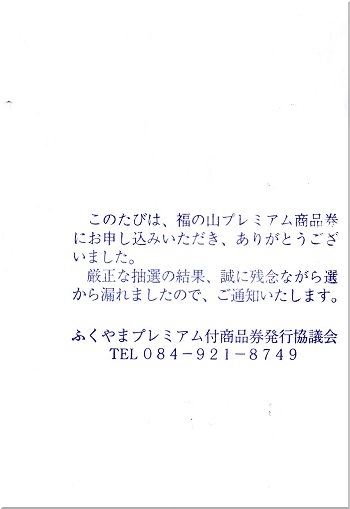 このたびは、福の山プレミアム商品券
にお申し込みいただき、ありがとうござ
いました。
厳正な抽選の結果、誠に残念ながら選
から漏れましたので、ご通知いたします。
ふくやまプレミアム付商品券発行協議会
TEL084-921-8749